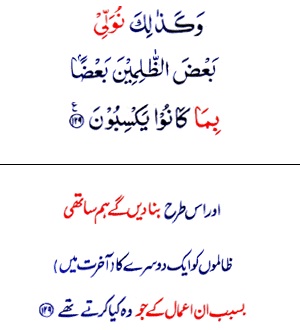 وَكَذٰلِكَ نُوَلِّىْ
بَعْضَ الظّٰلِمِيْنَ بَعْضًاۢ
بِمَا كَانُوْا يَكْسِبُوْنَ ۧ ﴿۱۲۹﴾
اور اس طرح بنا دیں گے ہم ساتھی
ظالموں کو ایک دوسرے کا (آخرت میں)
بسبب ان اعمال کے جو وہ کیا کرتے تھے ﴿۱۲۹﴾